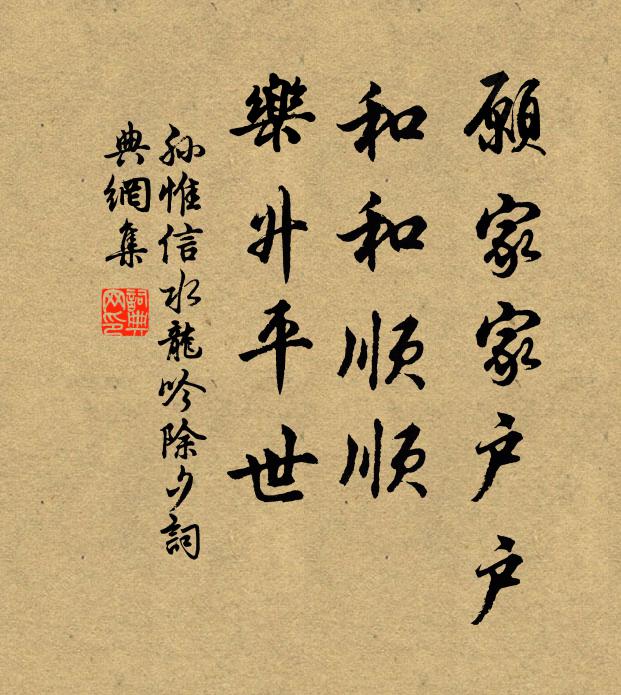 願家家戶戶
和和順順
樂升平世
孫惟信水龍吟除夕詞
典網集
詞典
网印